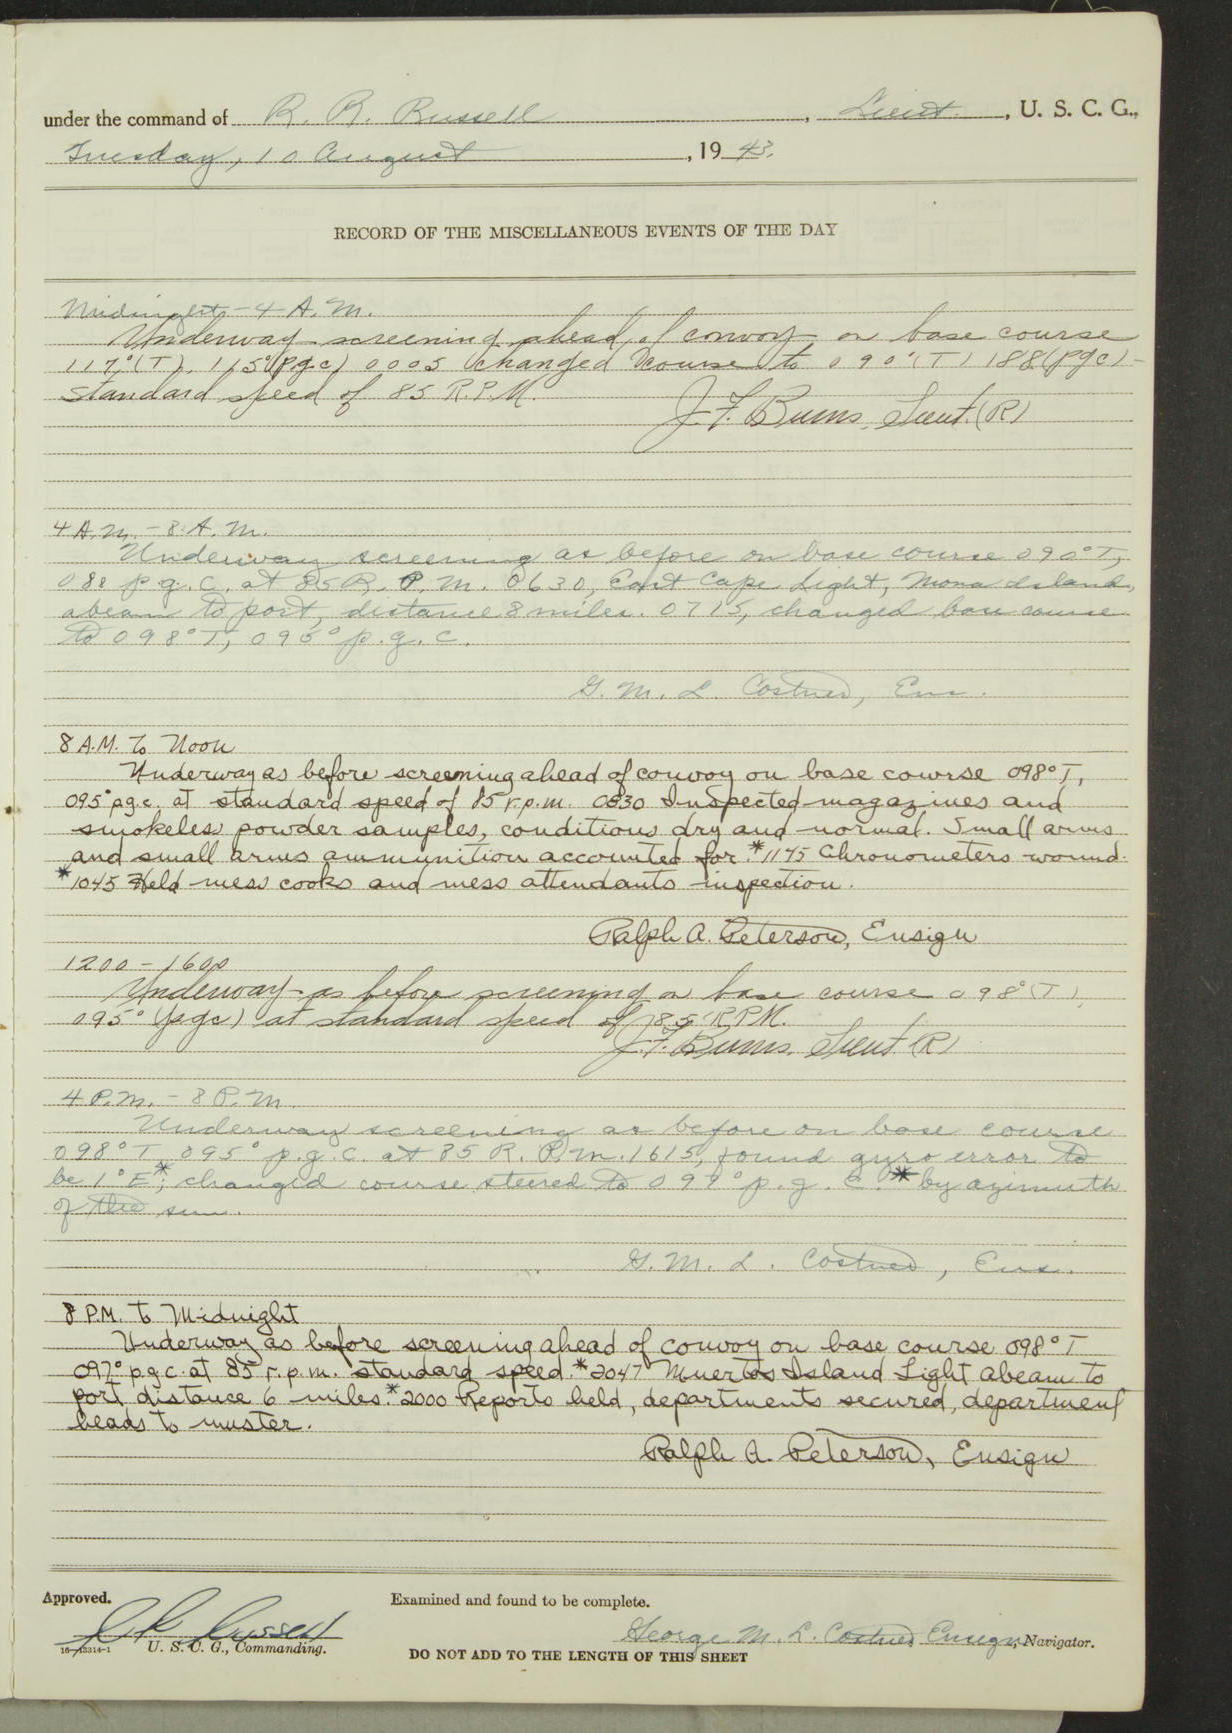 under the command of R. R. Russell, Lieut., U. S. C. G.,
Tuesday, 10 August, 1943.
RECORD OF THE MISCELLANEOUS EVENTS OF THE DAY
Midnight - 4 A.M.
Underway screening ahead of convoy on base course
117°(T), 115°(pgc) 0005 changed course to 090°(T) 188(pgc) -
standard speed of 85 R.P.M.
J. F. Burns, Lieut. (R)
4 A.M. - 8 A.M.
Underway screening as before on base course 090°T,
088 p.g.c. at 85 R.P.M. 0630, East Cape Light, Mona Island,
abeam to port, distance 8 miles. 0715, changed base course
to 098°T, 095° p.g.c.
G. M. L. Costner, Ens.
8 A.M. to Noon
Underway as before screening ahead of convoy on base course 098°T,
095° p.g.c. at standard speed of 85 r.p.m. 0830 Inspected magazines and
smokeless powder samples, conditions dry and normal. Small arms
and small arms ammunition accounted for.* 1145 Chronometers wound.
*1045 Held mess cooks and mess attendants inspection.
Ralph A. Peterson, Ensign
1200 - 1600
Underway as before screening on base course 098°(T),
095° (pgc) at standard speed of 85 RPM.
J. F. Burns, Lieut (R)
4 P.M. - 8 P.M.
Underway screening as before on base course
098°T 095° p.g.c. at 85 R.P.M. 1615, found gyro error to
be 1°E*; changed course steered to 097° p.g.c. * by azimuth
of the sun.
G. M. L. Costner, Ens.
8 P.M. to Midnight
Underway as before screening ahead of convoy on base course 098°T
097° p.g.c. at 85 r.p.m. standard speed.* 2047 Muertos Island Light abeam to
port, distance 6 miles.* 2000 Reports held, departments secured, department
heads to muster.
Ralph A. Peterson, Ensign
Approved.
Examined and found to be complete.
R R Russell
U. S. C. G., Commanding.
George M. L. Costner Ensign, Navigator.
16-13314-1
DO NOT ADD TO THE LENGTH OF THIS SHEET